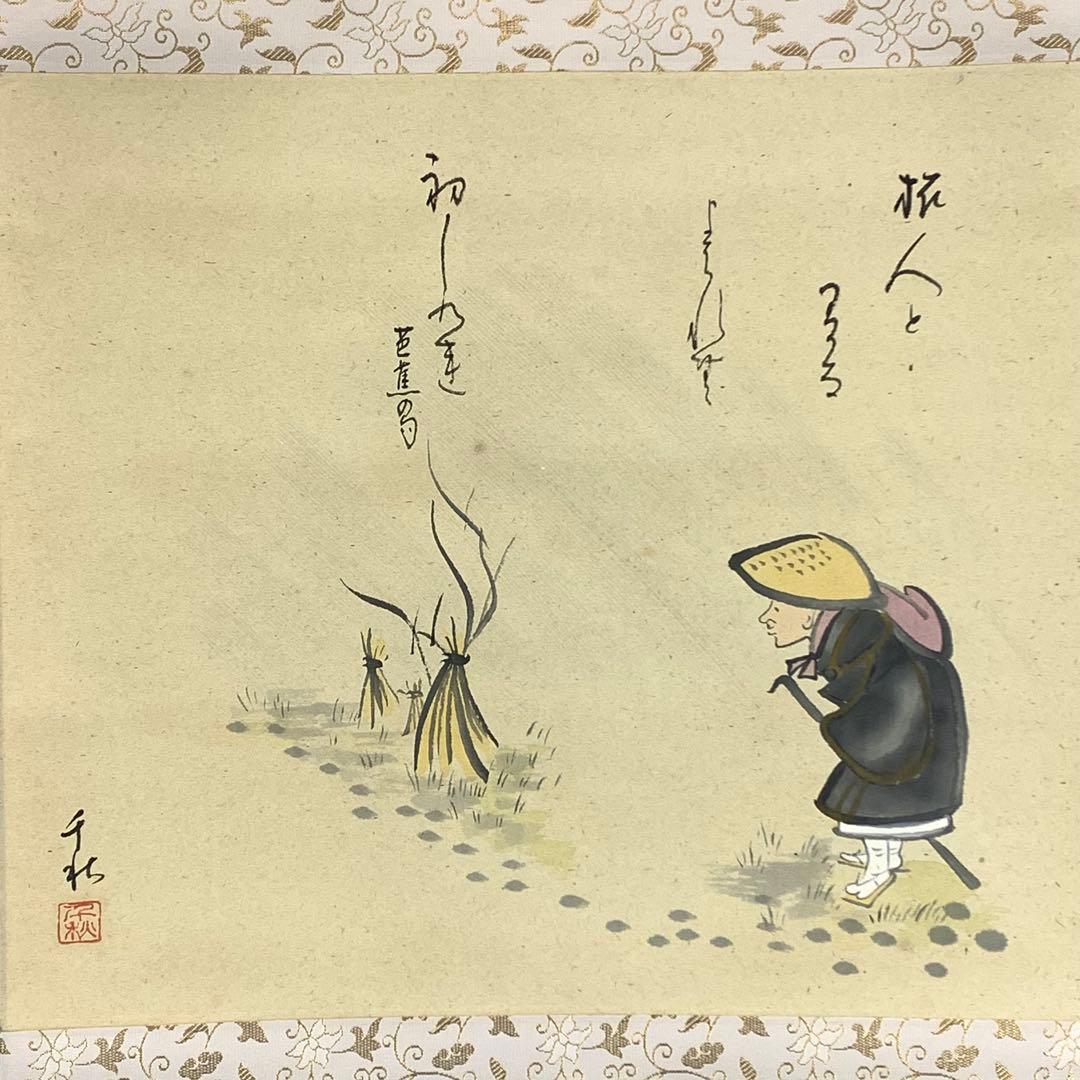 旅人と
わか名
よはれむ
初しくれ
芭蕉の句
千秋
千秋